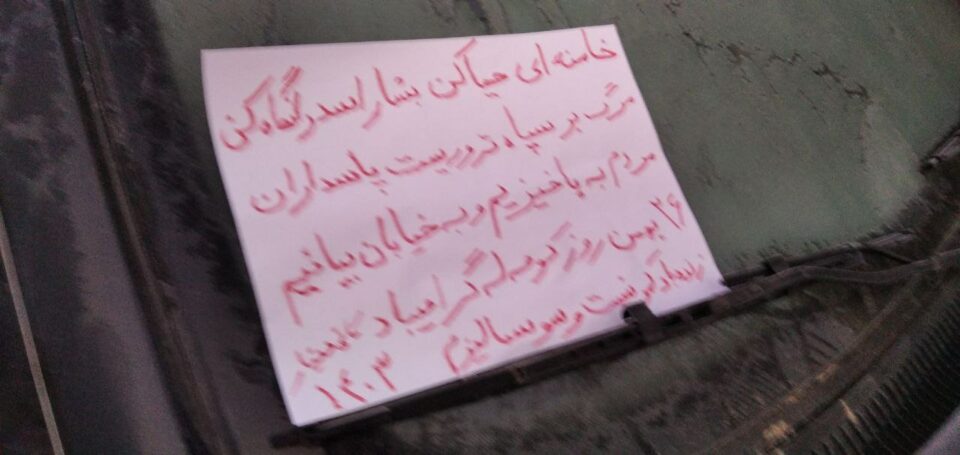 خامنه ای حیا کن بشار اسد رانگاه کن
مرگ بر سپاه تروریست پاسداران
مردم به پاخیزیم و به خیابان بیائیم
۲۶ بهمن روز کومه له گرامیباد
زنده باد کمونیست و سوسیالیزم ۱۴۰۳